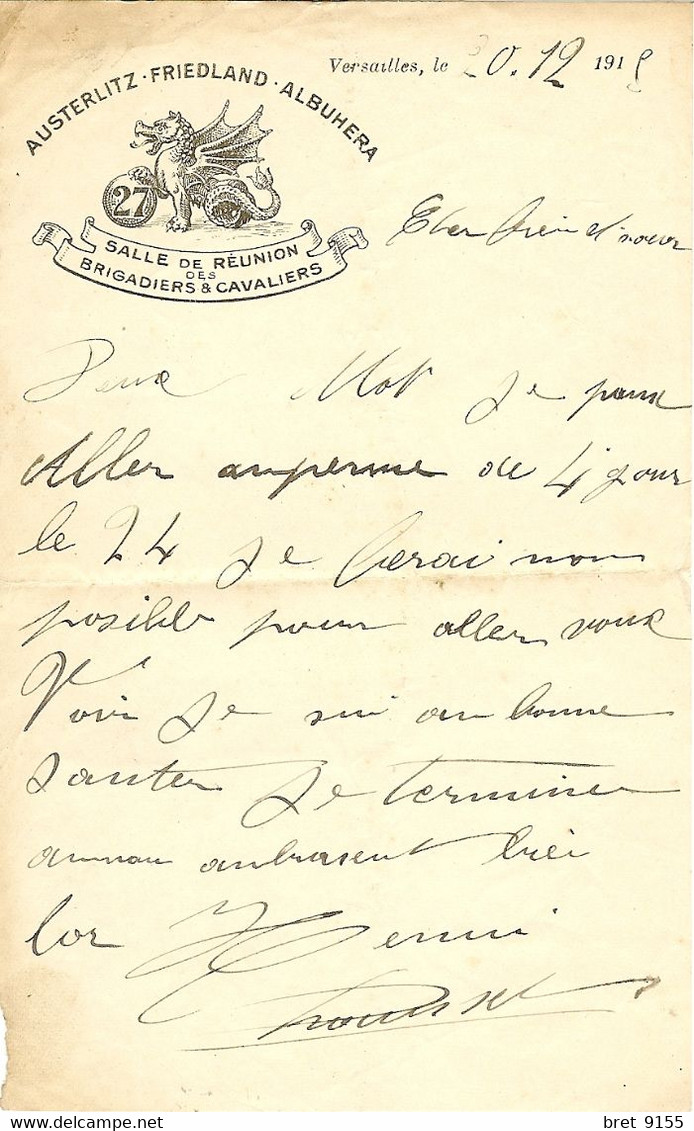 AUSTERLITZ · FRIEDLAND · ALBUHERA
27
SALLE DE RÉUNION
DES
BRIGADIERS & CAVALIERS
Versailles, le 20.12 1915
Cher frère et soeur
Deux Mot Je panx
Aller anperme de 4 jour
le 24 Je ferai mon
posible pour aller vous
Voir Je sui an bonne
santer Je termine
anmou anbrasent bien
for Henri
bret 9155